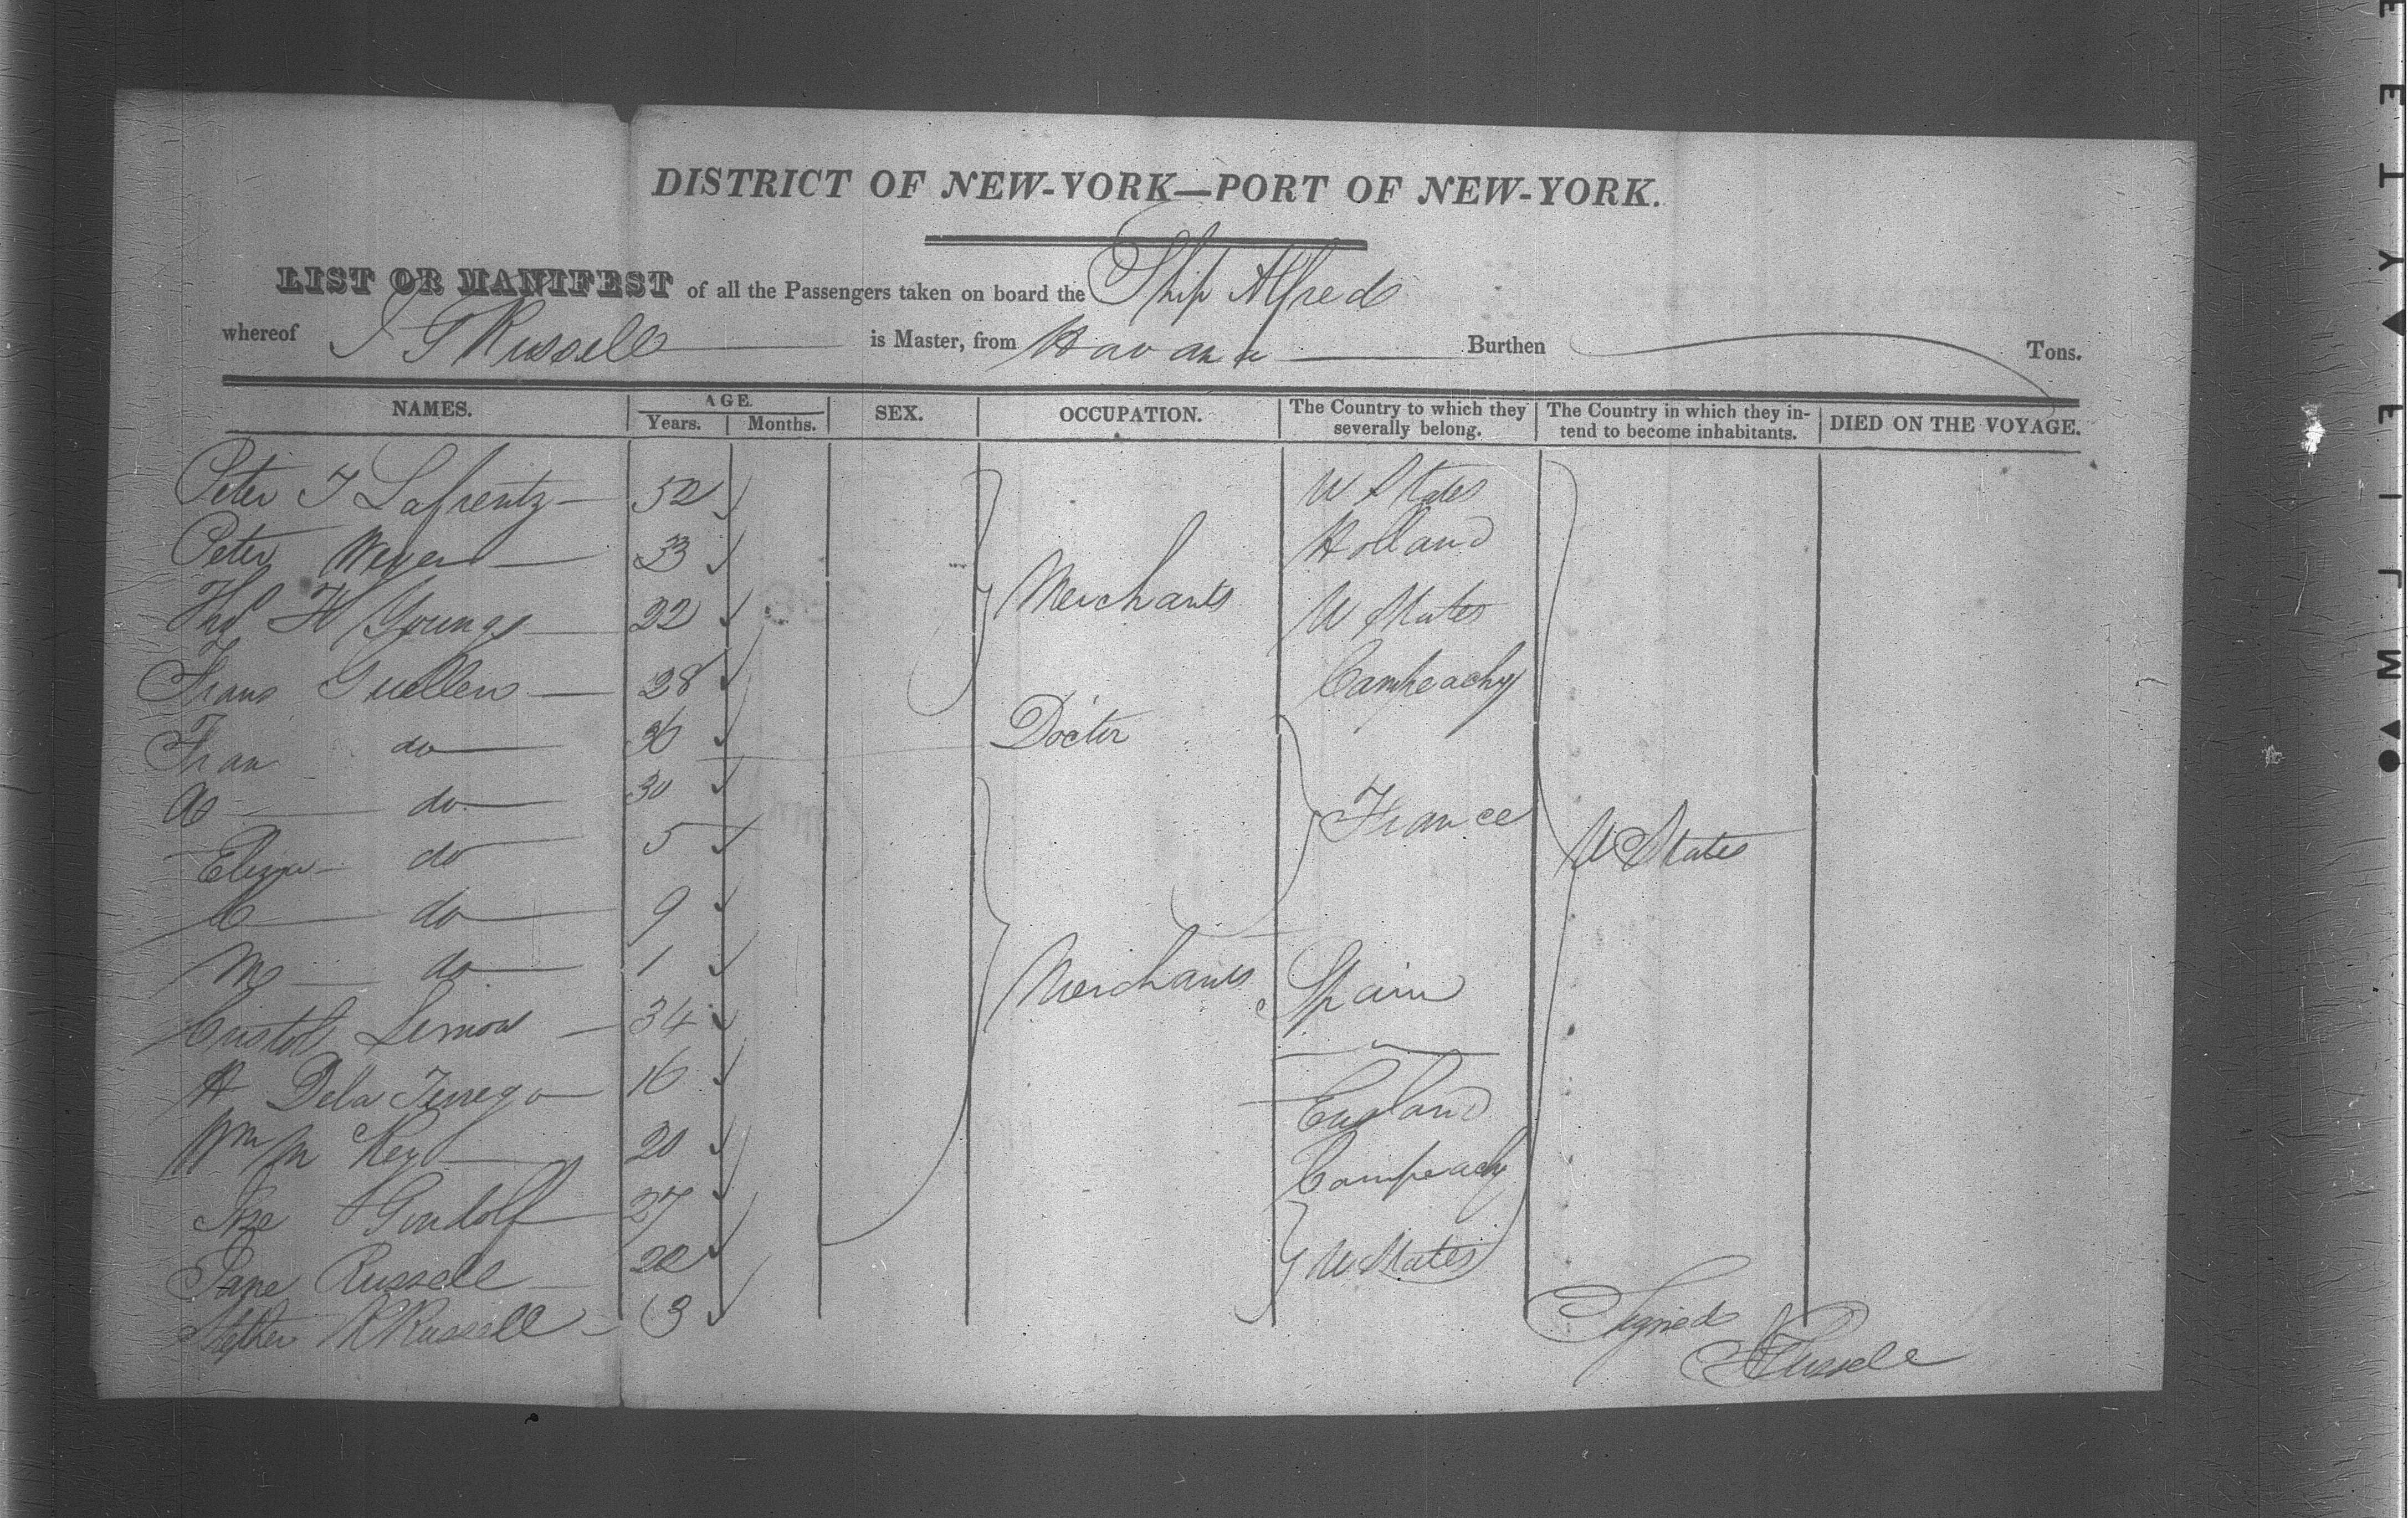 DISTRICT OF NEW-YORK—PORT OF NEW-YORK.
LIST OR MANIFEST of all the Passengers taken on board the Ship Alfred
whereof J G Russell is Master, from Havana Burthen Tons.
NAMES. AGE. Years. Months. SEX. OCCUPATION. The Country to which they severally belong. The Country in which they intend to become inhabitants. DIED ON THE VOYAGE.
Peter J Lafrentz 52 U States
Peter Meyer 33 Holland
Thos H Youngs 22 Merchants U States
Frans Guellen 28 Campeachy
Fran do 36 Doctor
A do 30 France
Eliza do 5 U States
C do 9
M do 1 Merchants Spain
Cristol Lemon 34
A Dela 16 England
Wm Mc Key 20 Campeachy
Jose Gondolf 27
Jane Russell 22 U States
Stephen R Russell 3 Signed
J G Russell